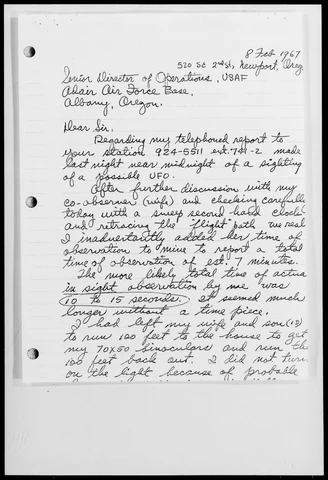 8 Feb 1967
520 SE 2nd St, Newport, Oreg
Senior Director of Operations, USAF
Adair Air Force Base,
Albany, Oregon.
Dear Sir.
Regarding my telephoned report to
your station 924-5511 ext. 741-2 made
last night near midnight of a sighting
of a possible UFO.
After further discussion with my
co-observer (wife) and checking carefully
today with a sweep second hand clock
and retracing the "flight" path we
I inadvertantly added her time of
observation to mine to report a total
time of observation of est. 7 minutes.
The more likely total time of
in sight observation by me was
10 to 15 seconds. It seemed much
longer without a time piece.
I had left my wife and son (13)
to run 100 feet to the house to get
my 70x50 binoculars and run the
100 feet back out. I did not turn
on the light because of probable